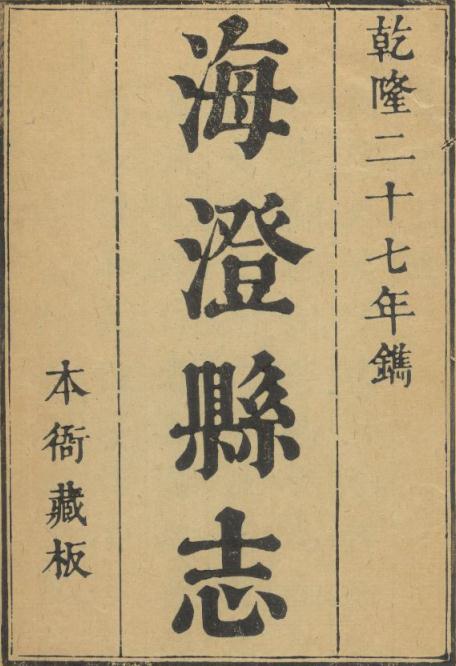 乾隆二十七年鐫
海澄縣志
本衙藏板